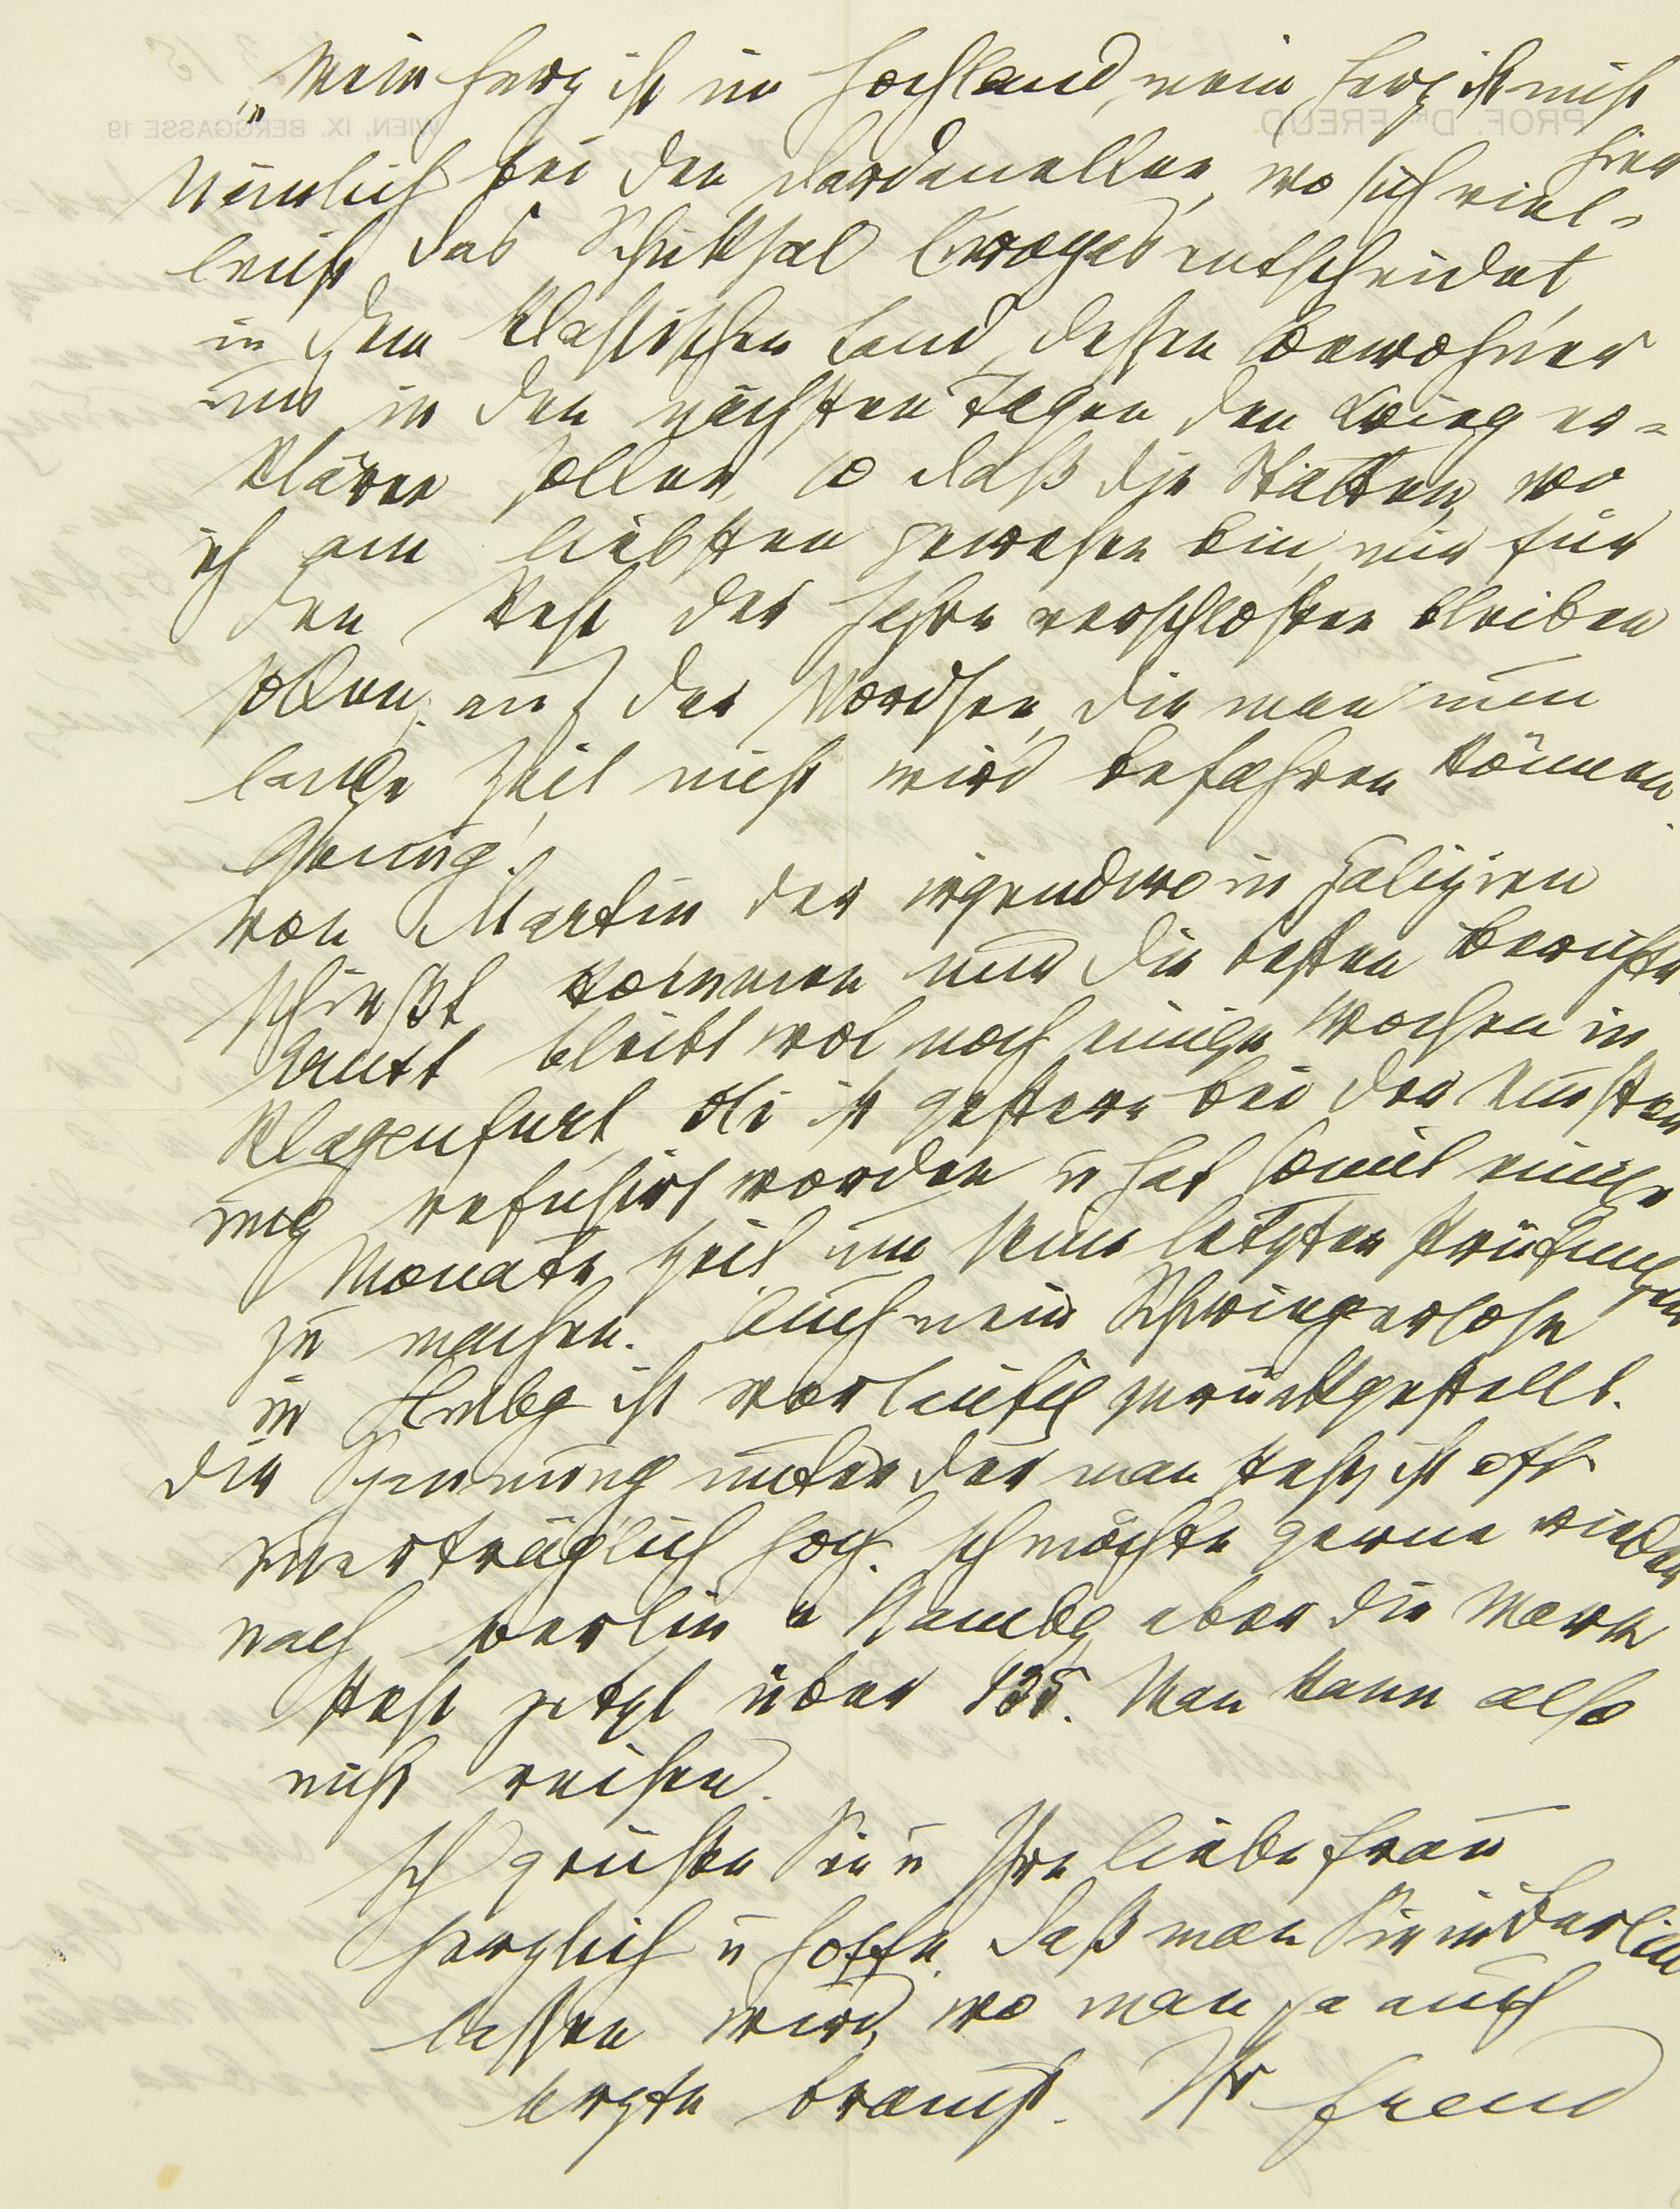 „Mein Herz ist im Hochland, mein Herz ist nicht
hier"
Nämlich bei den Dardanellen, wo sich viel-
leicht das Schicksal Europas entscheidet,
in dem klassischen Land, dessen Bewohner
uns in den nächsten Tagen den Krieg er-
klären sollen, so daß die Stätten, wo
ich am liebsten gewesen bin, mir für
den Rest der Jahre verschlossen bleiben
sollen; auf der Nordsee, die man nun
lange Zeit nicht wird befahren können.
Genug!
Von Martin der irgendwo in Galizien
schießt, kommen nur die besten Berichte
Ernst bleibt wol noch einige Wochen in
Klagenfurt, Oli ist gestern bei der Muster
ung refusirt worden u hat somit einige
Monate Zeit um seine letzten Prüfungen
zu machen. Auch mein Schwiegersohn
in Hmbg ist vorläufig zurückgestellt.
Die Spannung unter der man steht, ist oft
unerträglich hoch. Ich möchte gerne wieder
nach Berlin u Hambg, aber die Mark
steht jetzt über 135. Man kann also
nicht reisen.
Ich grüße Sie u Ihre liebe Frau
herzlich u hoffe, daß man Sie in Berlin
lassen wird, wo man ja auch
Ärzte braucht. Ihr Freud
PROF. DR. FREUD
WIEN, IX. BERGGASSE 19